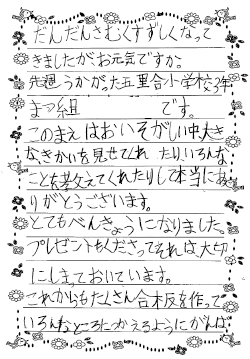 だんだんさむくすずしくなって
きましたが、お元気ですか。
先週うかがった五里合小学校3年
まつ組 です。
このまえはおいそがしい中大き
なきかいを見せてくれたり、いろんな
ことを教えてくれたりして本当にあ
りがとうございます。
とてもべんきょうになりました。
プレゼントもくださってそれは、大切
にしまっておいています。
これからもたくさん合板を作って
いろんなところにつかえるようにがんば